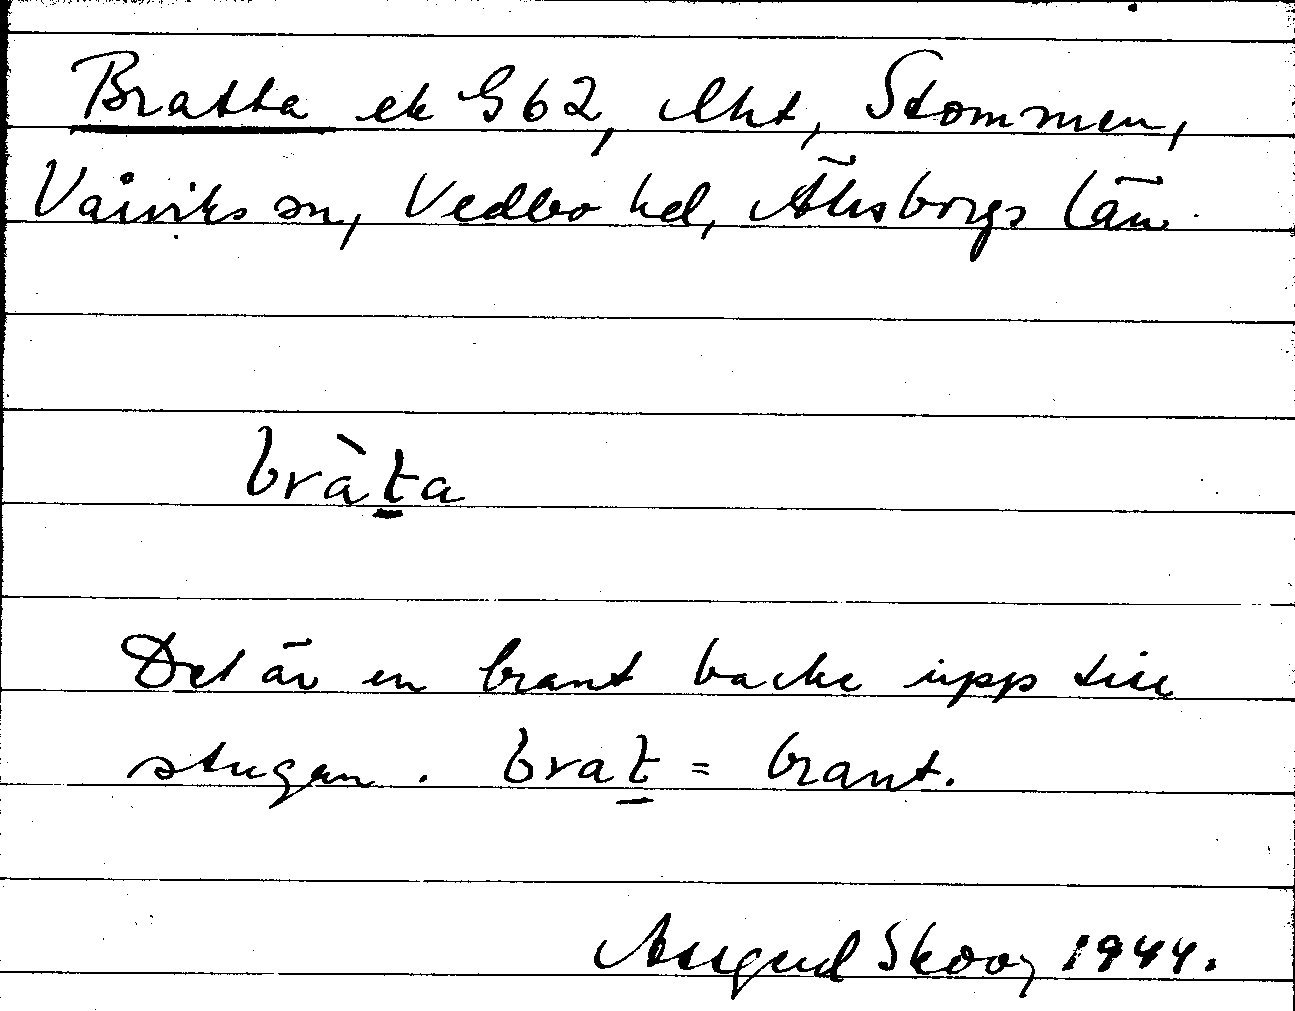 Bratta ek G62, lht, Stommen,
Vårviks sn, Vedbo hd, Älvsborgs län.
bràt̲a
Det är en brant backe upp till
stugan. brat̲ = brant.
Skoog 1944.